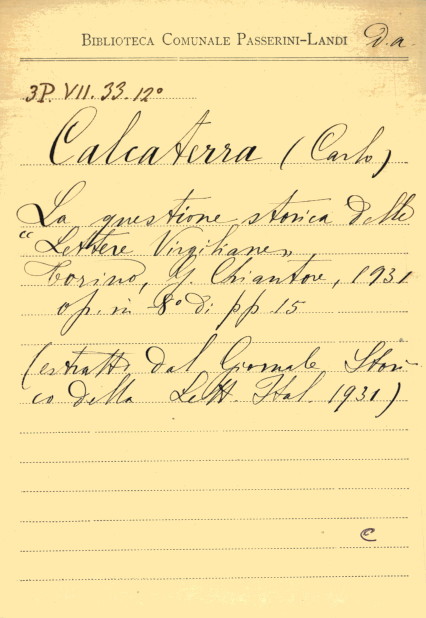 BIBLIOTECA COMUNALE PASSERINI-LANDI D. a.
3P. VII. 33. 12°
Calcaterra (Carlo)
La questione storica delle
"Lettere Virgiliane„
Torino, G. Chiantore, 1931
op. in 8° di pp. 15
(estratto dal Giornale Stori-
co della Lett. Ital. 1931)
C